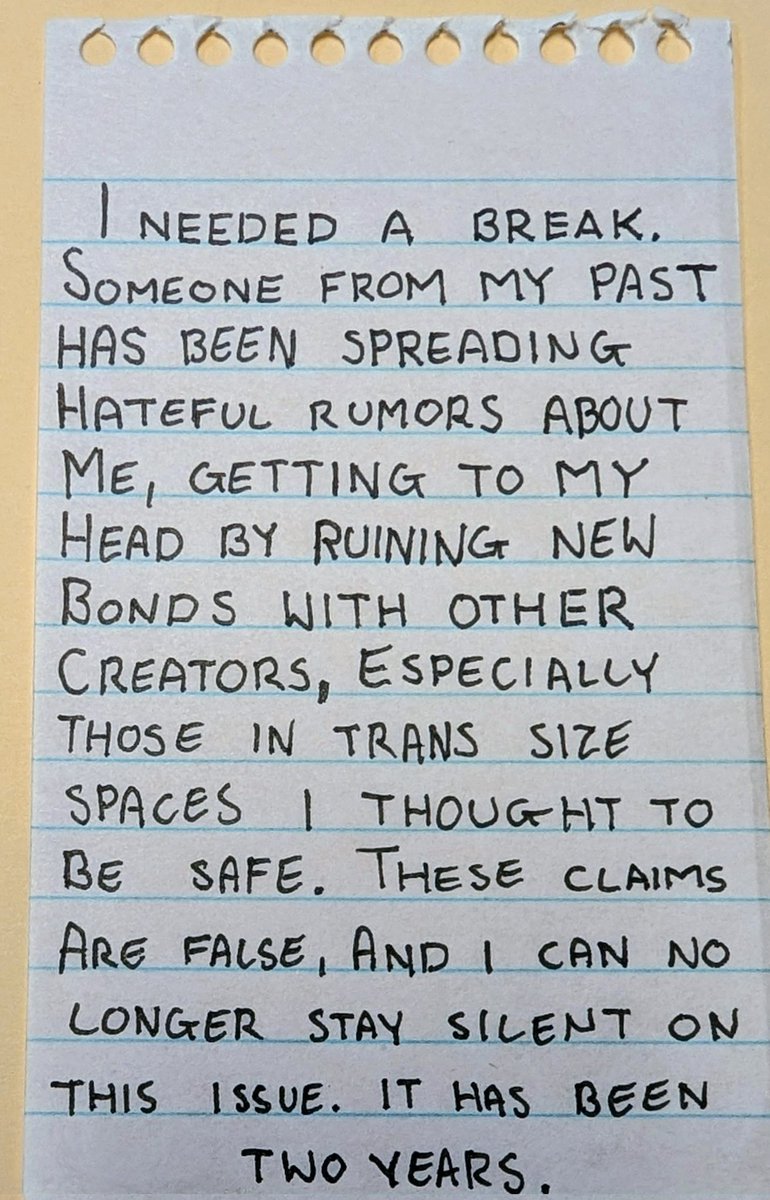 I NEEDED A BREAK.
SOMEONE FROM MY PAST
HAS BEEN SPREADING
HATEFUL RUMORS ABOUT
ME, GETTING TO MY
HEAD BY RUINING NEW
BONDS WITH OTHER
CREATORS, ESPECIALLY
THOSE IN TRANS SIZE
SPACES I THOUGHT TO
BE SAFE. THESE CLAIMS
ARE FALSE, AND I CAN NO
LONGER STAY SILENT ON
THIS ISSUE. IT HAS BEEN
TWO YEARS.